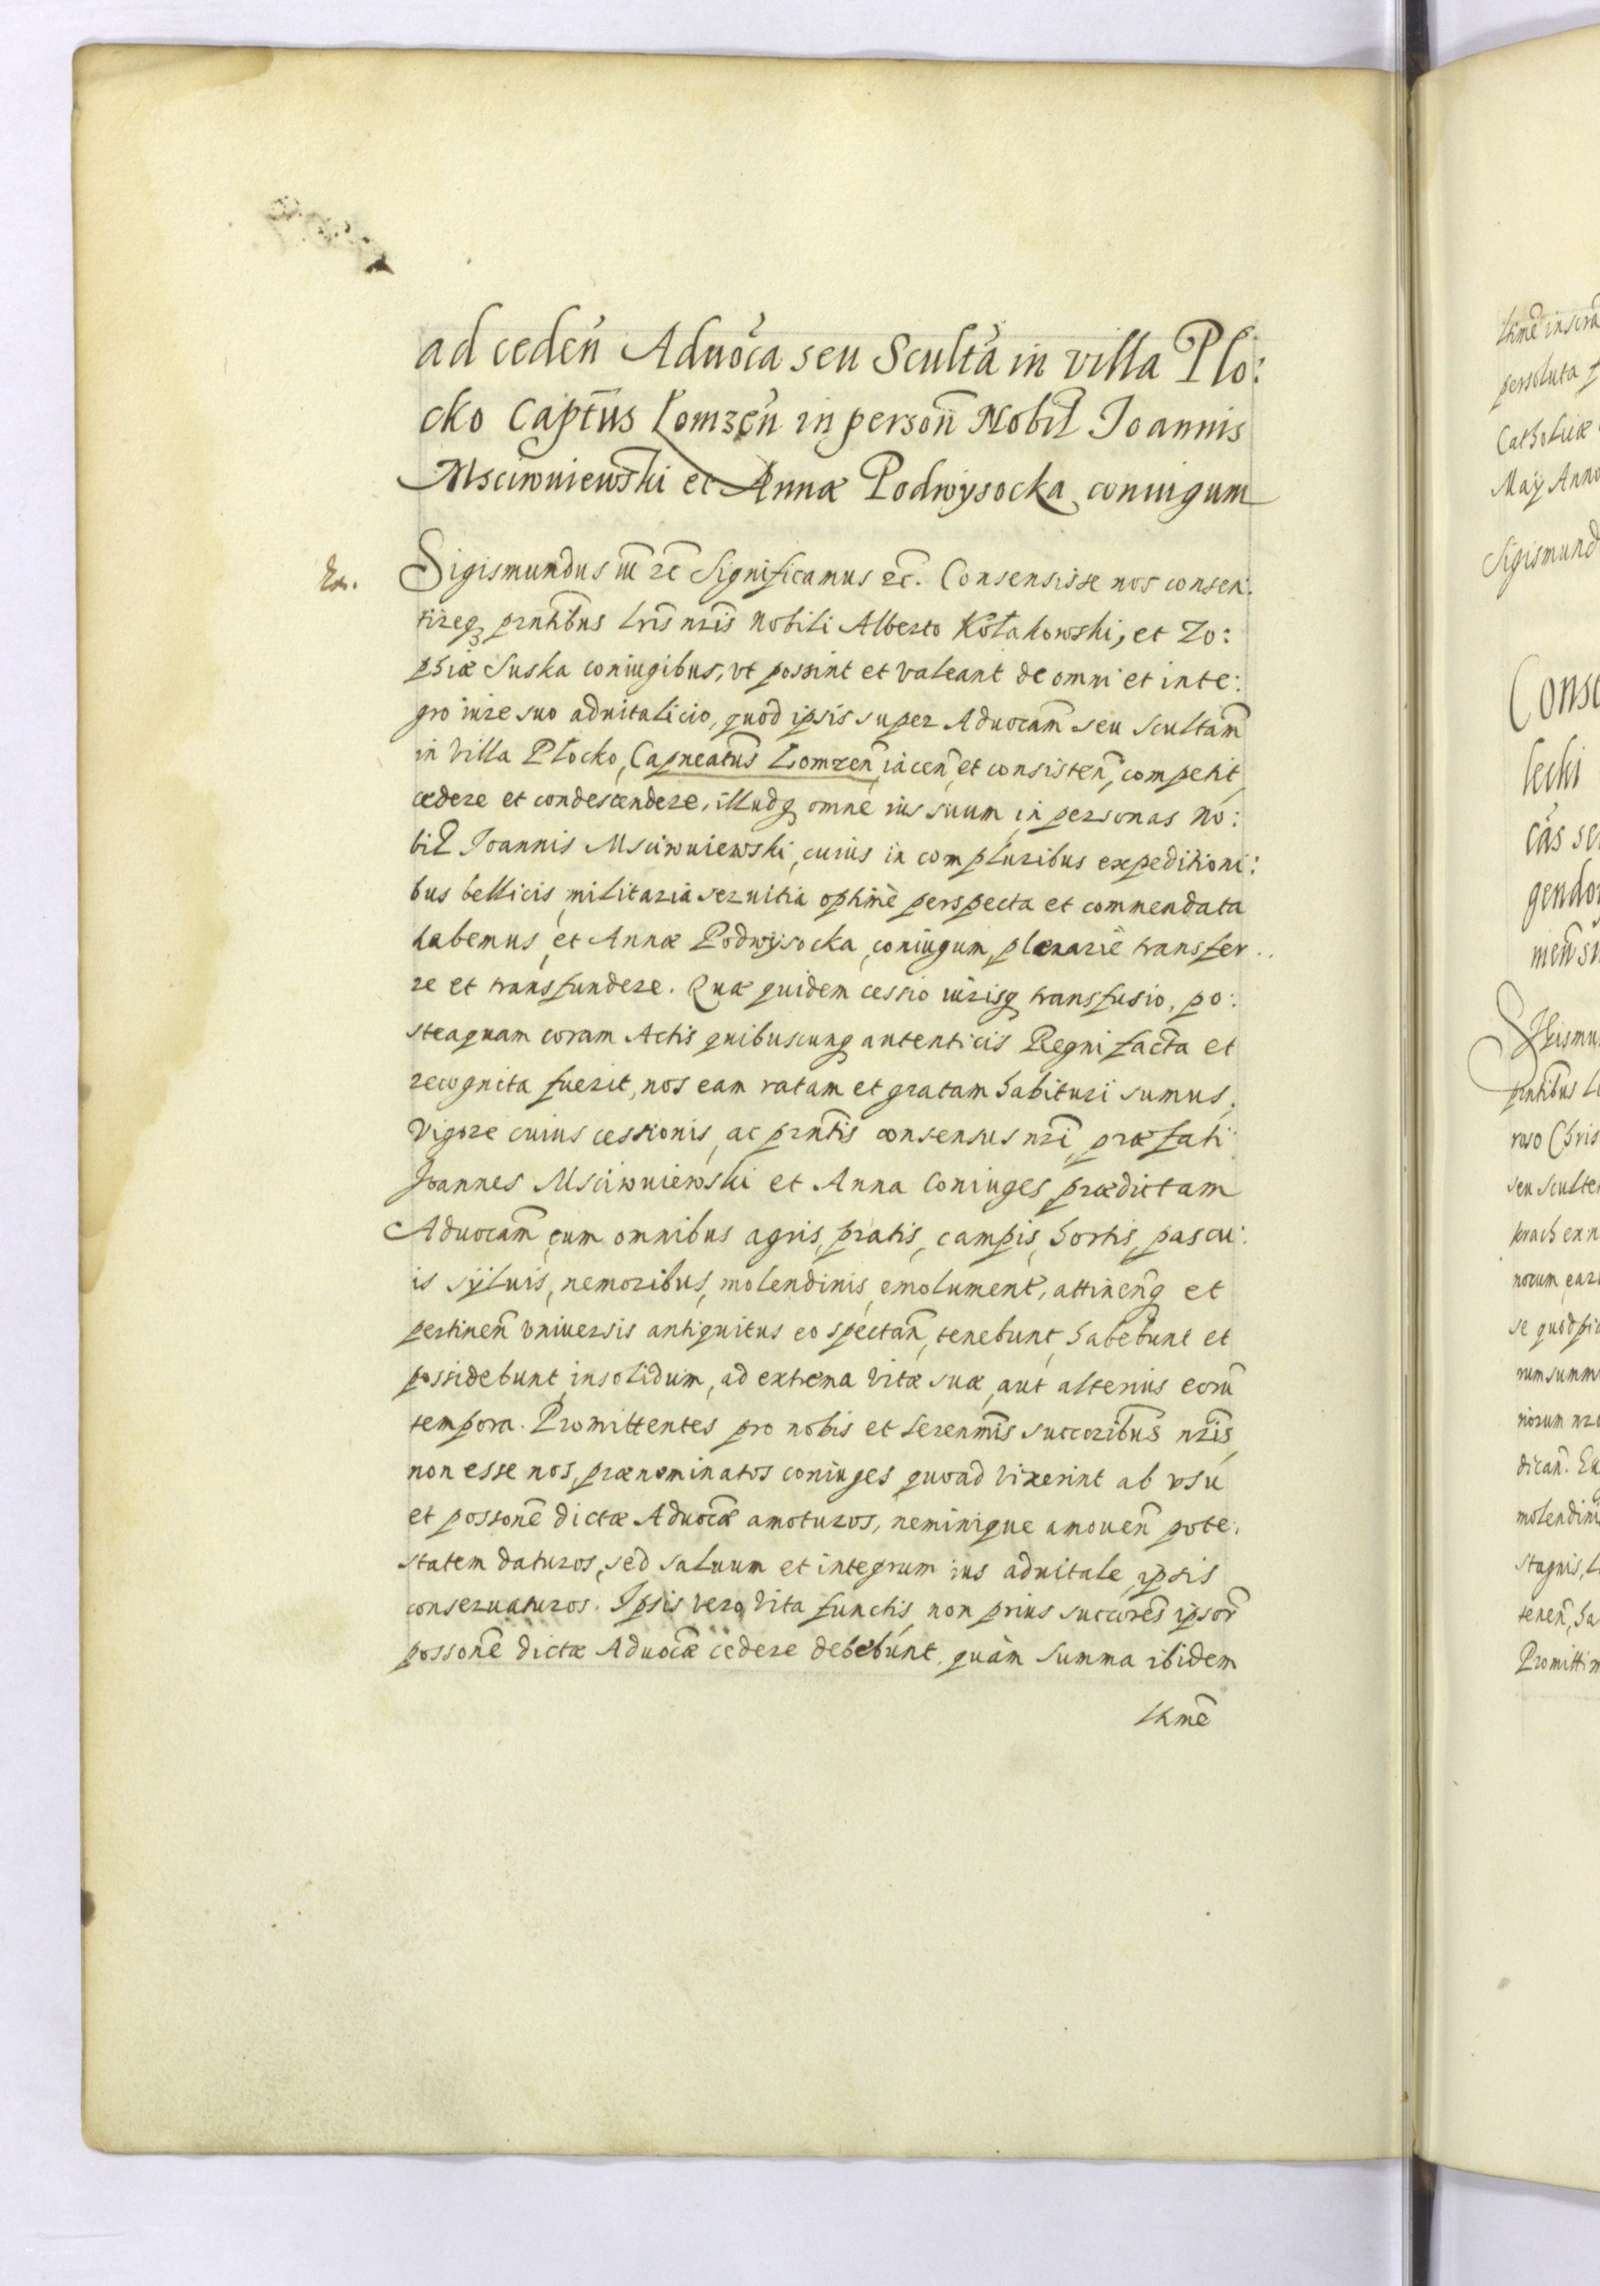 ad ceden̄ Aduōca seu Scultā in villa Plo:
cko Captūs Łomzen̄ in person̄ Nobil Joannis
Msciwuiewski et Annæ Podwysocka coniugum
Ex. Sigismundus iii zc̄ Significamus zc̄. Consensisse nos consen:
tireq₃ prn̄tibus lrīs nrīs Nobili Alberto Kołakowski, et Zo:
phiæ Suska coniugibus, vt possint et valeant de omni et inte:
gro iure suo aduitalicio, quod ipsis super Aduocam̄ seu scultam̄
in villa Płocko, Capneatūs Łomzen̄, iacen̄, et consisten̄, competit,
cedere et condescendere, illudq₃ omne ius suum in personas No:
bil Joannis Msciwuiewski, cuius in compluribus expeditioni:
bus bellicis, militaria seruitia optimè perspecta et commendata
habemus, et Annæ Podwysocka, coniugum, plenariè transfer..
re et transfundere. Quæ quidem cessio iurisq₃ transfusio, po:
steaquam coram Actis quibuscunq₃ autenticis Regni facta et
recognita fuerit, nos eam ratam et gratam habituri sumus.
Vigore cuius cessionis, ac prn̄tis consensus nrī, præfati
Joannes Msciwuiewski et Anna Coniuges prædictam
Aduocam̄ cum omnibus agris, pratis, campis, hortis, pascu:
is syluis, nemoribus, molendinis, emolument, attinen̄q₃ et
pertinen̄ vniuersis antiquitus eo spectan̄, tenebunt, habebunt et
possidebunt insolidum, ad extrema vitæ suæ, aut alterius eorū
tempora. Promittentes pro nobis et Serenm̄is succoribus nrīs,
non esse nos, prænominatos coniuges quoad vixerint ab vsu
et possonē dictæ Aduocǣ amoturos, neminique amouen̄ pote:
statem daturos, sed saluum et integrum ius aduitale ipsis
conseruaturos. Ipsis vero vita functis, non prius succorēs ipsor̄
possonē dictæ Aduocǣ cedere debebunt, quàm summa ibidem
lhmē
lhmē inscra
persoluta
Catholicæ
Maij Anno
Sigismund
Conse
lecki
cās se
gendo
men̄ su
Sigismu
prn̄tibus
roso Chris
seu sculte
norum ear
se quod pi
rum summ
niorum nr
dican̄. Ea
molendini
stagnis, l
tenen̄, ha
Promittim